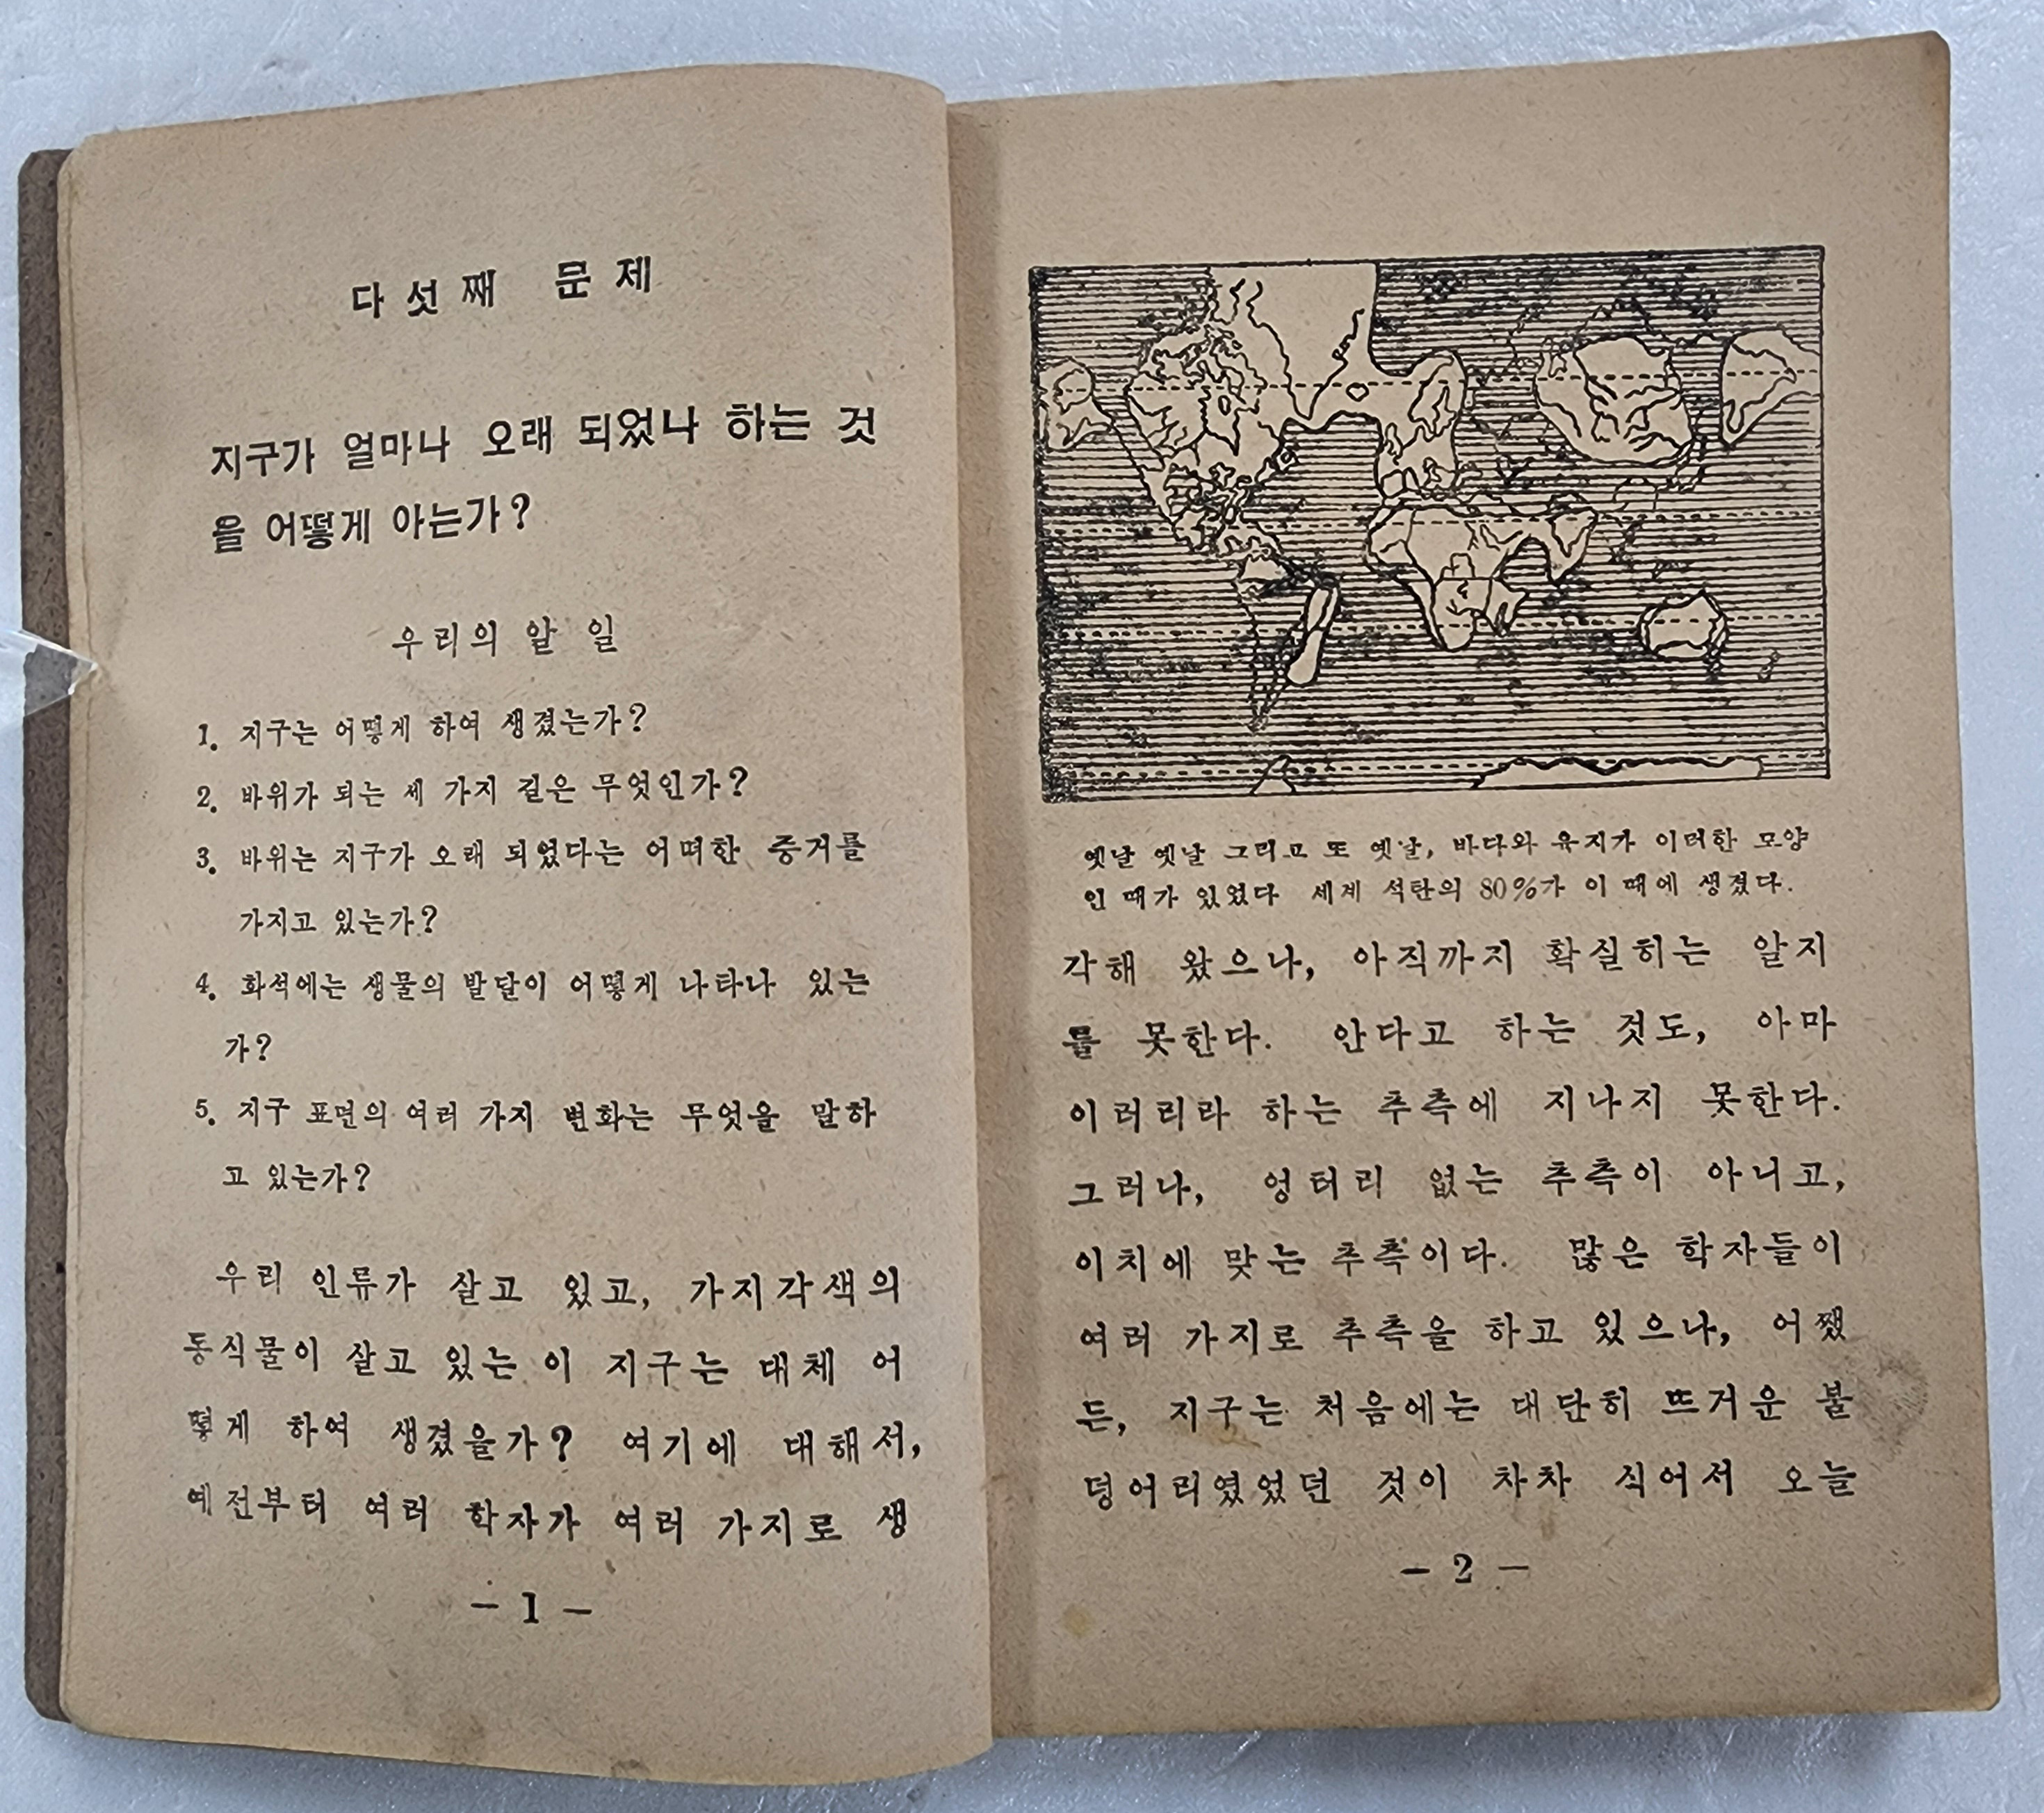 다섯째 문제
지구가 얼마나 오래 되었나 하는 것
을 어떻게 아는가?
우리의 알 일
1. 지구는 어떻게 하여 생겼는가?
2. 바위가 되는 세 가지 길은 무엇인가?
3. 바위는 지구가 오래 되었다는 어떠한 증거를
가지고 있는가?
4. 화석에는 생물의 발달이 어떻게 나타나 있는
가?
5. 지구 표면의 여러 가지 변화는 무엇을 말하
고 있는가?
우리 인류가 살고 있고, 가지각색의
동식물이 살고 있는 이 지구는 대체 어
떻게 하여 생겼을가? 여기에 대해서,
예전부터 여러 학자가 여러 가지로 생
- 1 -
옛날 옛날 그리고 또 옛날, 바다와 육지가 이러한 모양
인 때가 있었다 세계 석탄의 80%가 이 때에 생겼다.
각해 왔으나, 아직까지 확실히는 알지
를 못한다. 안다고 하는 것도, 아마
이러리라 하는 추측에 지나지 못한다.
그러나, 엉터리 없는 추측이 아니고,
이치에 맞는 추측이다. 많은 학자들이
여러 가지로 추측을 하고 있으나, 어쨌
든, 지구는 처음에는 대단히 뜨거운 불
덩어리였었던 것이 차차 식어서 오늘
- 2 -